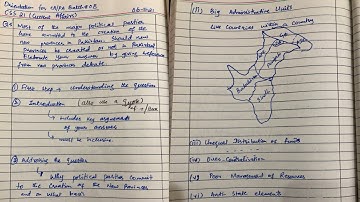 Orientation for
CSS 21 (Current Affairs)
Q: Most of the major political parties
have committed to the creation of the
new provinces in Pakistan. Should new
Provinces be created or not in Pakistan?
Elaborate your answer by giving references
from new provinces debate.
① First Step → Understanding the Question
② Introduction (Also use a Quote)
↳ includes key arguments
of your answer
↳ must be inclusive.
③ Witnessing the Question
↳ Why political parties commit
to the Creation of the New Provinces
and on what basis
(ii) Big Administrative Units
Like Countries within a Country
KPK
Balochistan
Punjab
Sindh
(iii) Unequal Distribution of Funds
(iv) Over-Centralization
(v) Poor Management of Resources
(vi) Anti State elements